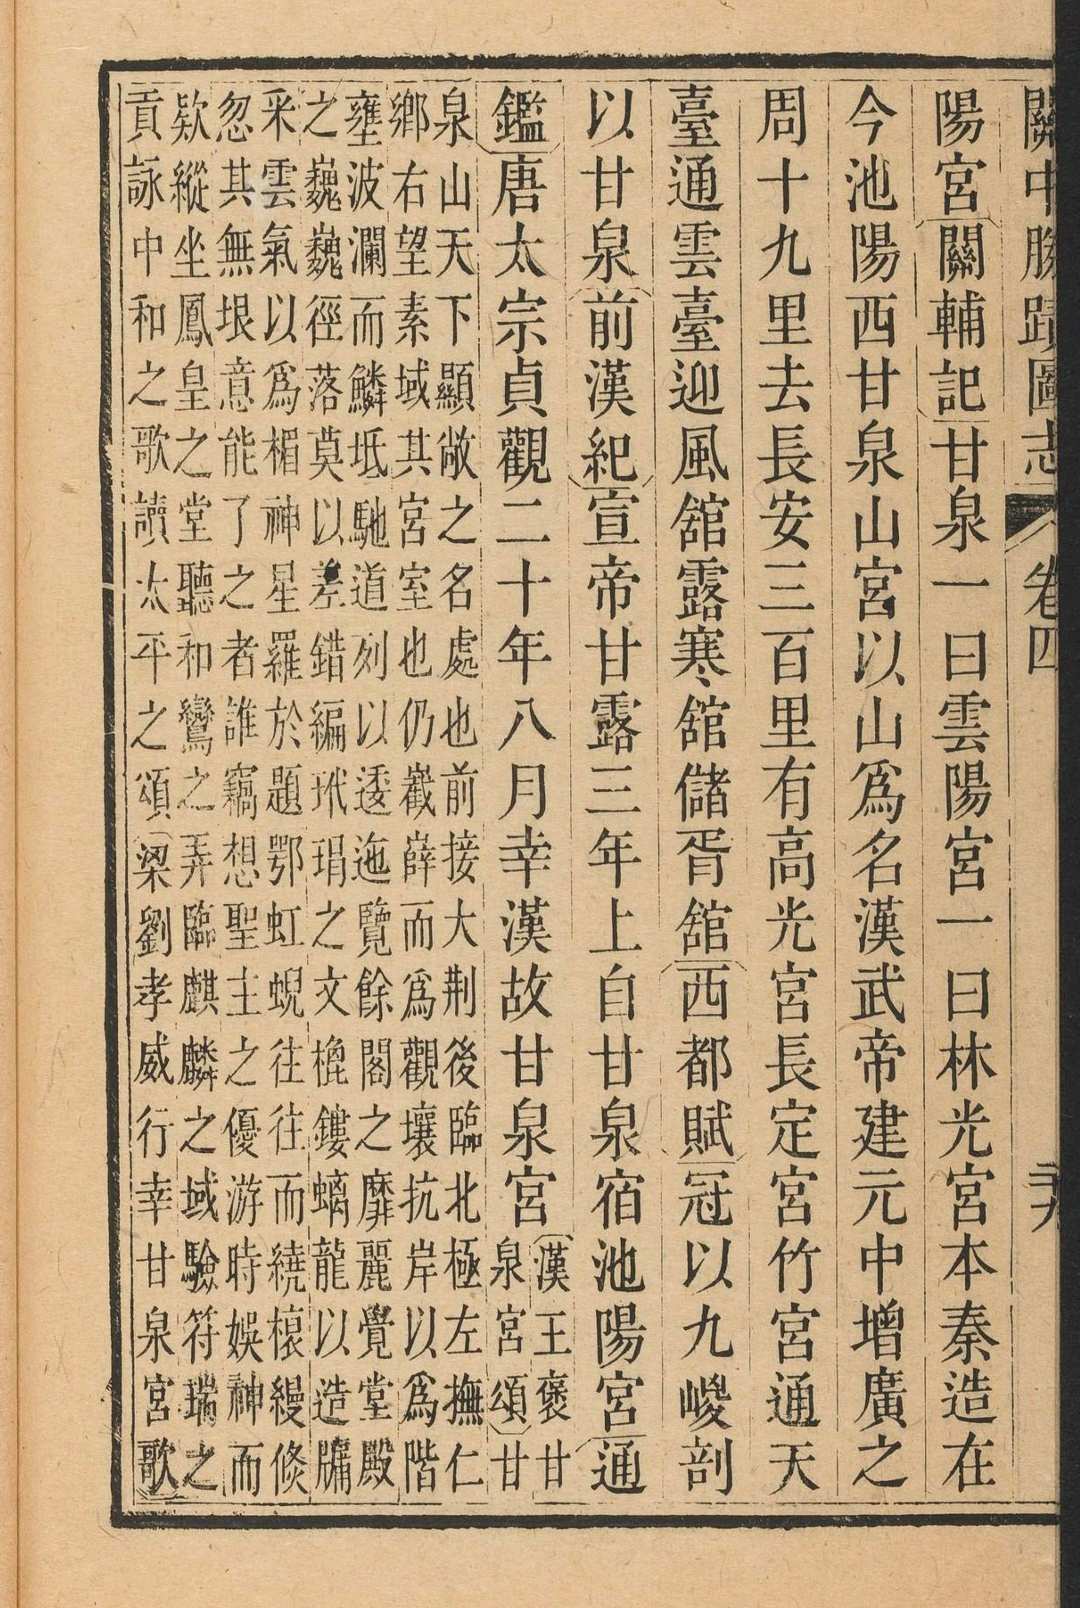 關中勝蹟圖志 卷四
陽宮關輔記甘泉一曰雲陽宮一曰林光宮本秦造在
今池陽西甘泉山宮以山爲名漢武帝建元中增廣之
周十九里去長安三百里有高光宮長定宮竹宮通天
臺通雲臺迎風舘露寒舘儲胥舘西都賦冠以九嵕剖
以甘泉前漢紀宣帝甘露三年上自甘泉宿池陽宮通
鑑唐太宗貞觀二十年八月幸漢故甘泉宮
漢王褒甘
泉宮頌甘
泉山天下顯敞之名處也前接大荆後臨北極左撫仁
鄉右望素域其宮室也仍嶻嶭而爲觀壤抗岸以爲階
壅波瀾而鱗坻馳道列以逶迤覽餘閣之靡麗覺堂殿
之巍巍徑落莫以差錯編玳瑁之文㮰鏤螭龍以造牖
采雲氣以爲楣神星羅於題鄂虹蜺往往而繞榱縵倏
忽其無垠意能了之者誰竊想聖主之優游時娛神而
欵縱坐鳳皇之堂聽和鸞之弄臨麒麟之域驗符瑞之
貢詠中和之歌讀太平之頌梁劉孝威行幸甘泉宮歌